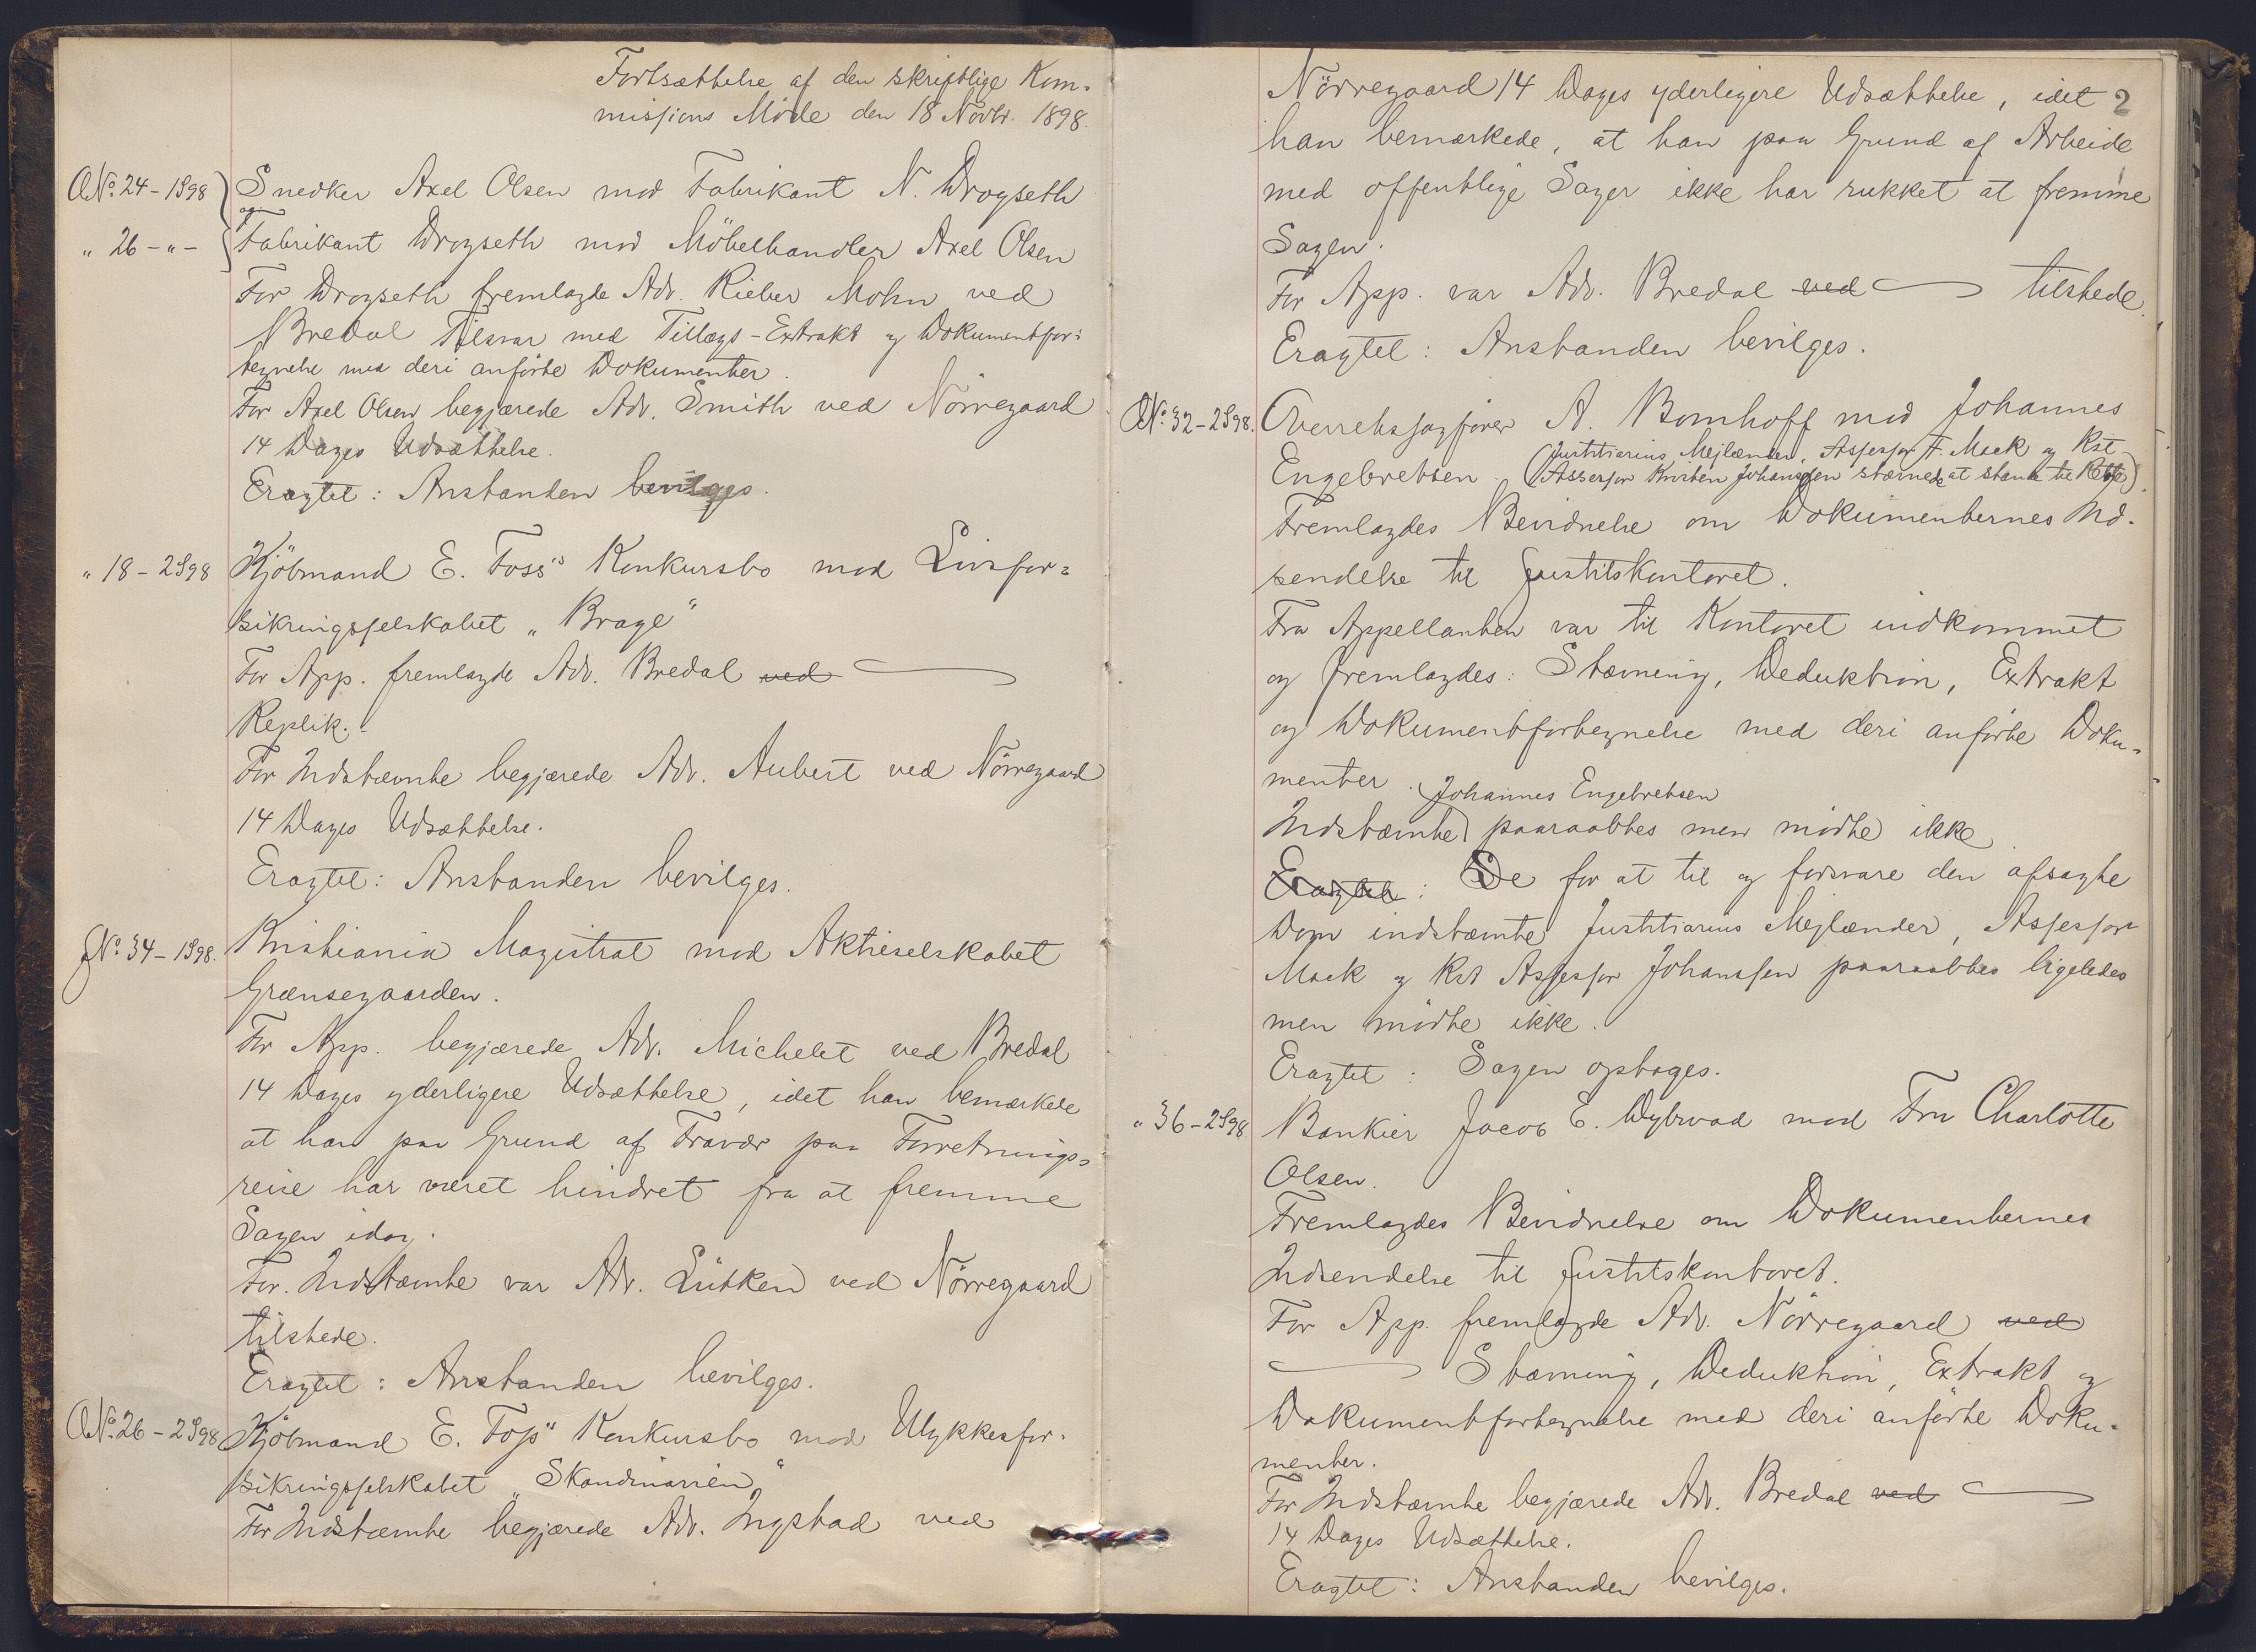 Fortsættelse af den skriftlige Kom-
missions Møde den 18 Novbr. 1898.
O No. 24 - 1S98 Snedker Axel Olsen mod Fabrikant N. Drogseth
og
" 26 - " - Fabrikant Drogseth mod Möbelhandler Axel Olsen
For Drogseth fremlagde Adv. Rieber Mohn ved
Bredal Tilsvar med Tillægs-Extrakt og Dokumentfor-
tegnelse med deri anførte Dokumenter.
For Axel Olsen begjærede Adv. Smith ved Nörregaard
14 Dages Udsættelse.
Eragtet: Anstanden bevilges.
" 18 - 2S98 Kjöbmand E. Foss's Konkursbo mod Livsfor-
sikringsselskabet "Brage"
For App. fremlagde Adv. Bredal ved
Replik.
For Indstævnte begjærede Adv. Aubert ved Nörregaard
14 Dages Udsættelse.
Eragtet: Anstanden bevilges.
No. 34 - 1S98. Kristiania Magistrat mod Aktieselskabet
Grænsegaarden.
For App. begjærede Adv. Michelet ved Bredal
14 Dages yderligere Udsættelse, idet han bemærkede
at han paa Grund af Fravær paa Forretnings-
reise har været hindret fra at fremme
Sagen idag.
For Indstævnte var Adv. Lütken ved Nörregaard
tilstede.
Eragtet: Anstanden bevilges.
O No. 26 - 2S98 Kjöbmand E. Foss' Konkursbo mod Ulykkesfor-
sikringsselskabet "Skandinavien"
For Indstævnte begjærede Adv. Ingstad ved
Nörregaard 14 Dages yderligere Udsættelse, idet 2
han bemærkede, at han paa Grund af Arbeide
med offentlige Sager ikke har rukket at fremme
Sagen.
For App. var Adv. Bredal ved tilstede.
Eragtet: Anstanden bevilges.
O No. 32 - 2S98. Overretssagfører A. Bomhoff mod Johannes
Justitiarius Mejlænder, Assessor F. Mack og Kst.
Engebretsen. (Assessor Kristen Johanssen stævnede at stande til Rette).
Fremlagdes Bevidnelse om Dokumenternes Ind-
sendelse til Justitskontoret.
Fra Appellanten var til Kontoret indkommet
og fremlagdes: Stævning, Deduktion, Extrakt
og Dokumentfortegnelse med deri anførte Doku-
menter.
Johannes Engebretsen
Indstævnte paaraabtes men mødte ikke
Eragtet: De for at til og forsvare den afsagte
Dom indstævnte Justitiarius Mejlænder, Assessor
Mack og Kst Assessor Johanssen paaraabtes ligeledes
men mødte ikke.
Eragtet: Sagen optages.
" 36 - 2S98 Bankier Jacob E. Dybwad mod Fru Charlotte
Olsen.
Fremlagdes Bevidnelse om Dokumenternes
Indsendelse til Justitskontoret.
For App. fremlagde Adv. Nörregaard ved
Stævning, Deduktion, Extrakt og
Dokumentfortegnelse med deri anførte Doku-
menter.
For Indstævnte begjærede Adv. Bredal ved
14 Dages Udsættelse.
Eragtet: Anstanden bevilges.